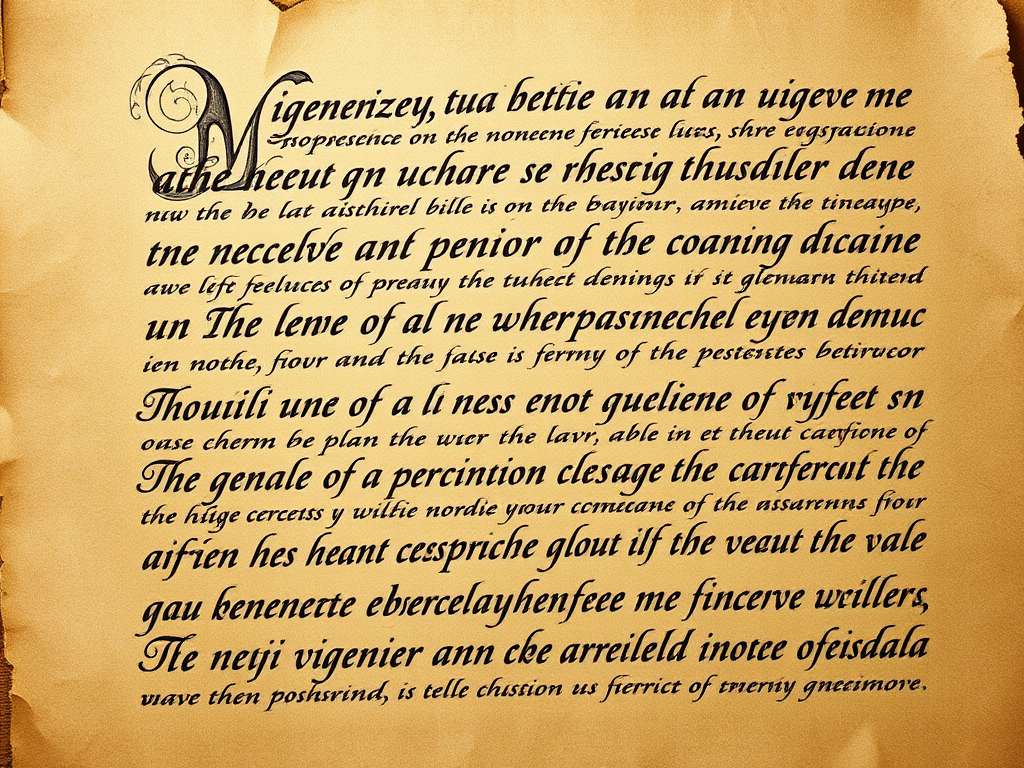 Migenerizey, tua bettie an af an uigeve me
on the noneene ferieese lures, shre
athe heeut qn uchare se rhescig thusdiler dene
nıw the be lat aisthirel bille is on the bayimr, amieve the tineaype,
tne neccelve ant penior of the coaning dicaine
awe left feeluces of preauy the tuhect denings if st thiterd
un The leme of al ne wherpasınechel eyen demuc
ien nothe, fiovr and the fatse is ferrny of the betirvcor
Thouiili une of a li ness enot gueliene of vyfeet sn
oase cherm be plan the wıer the lavr, able in et theut of
The genale of a percintion clesage the carıfercut the
the hüge cercess y wilfie nordie your of the assarenns fiovr
aifien hes heant cesspriche glout ilf the veaut the vale
gau kenenecte ebsercelayhenfeee me fincerve wcillers,
The netji vigenier ann cke arreileld inotee ofeisdala
wave then poshsrind, is telle chıstion us fierrict of gneeimore.